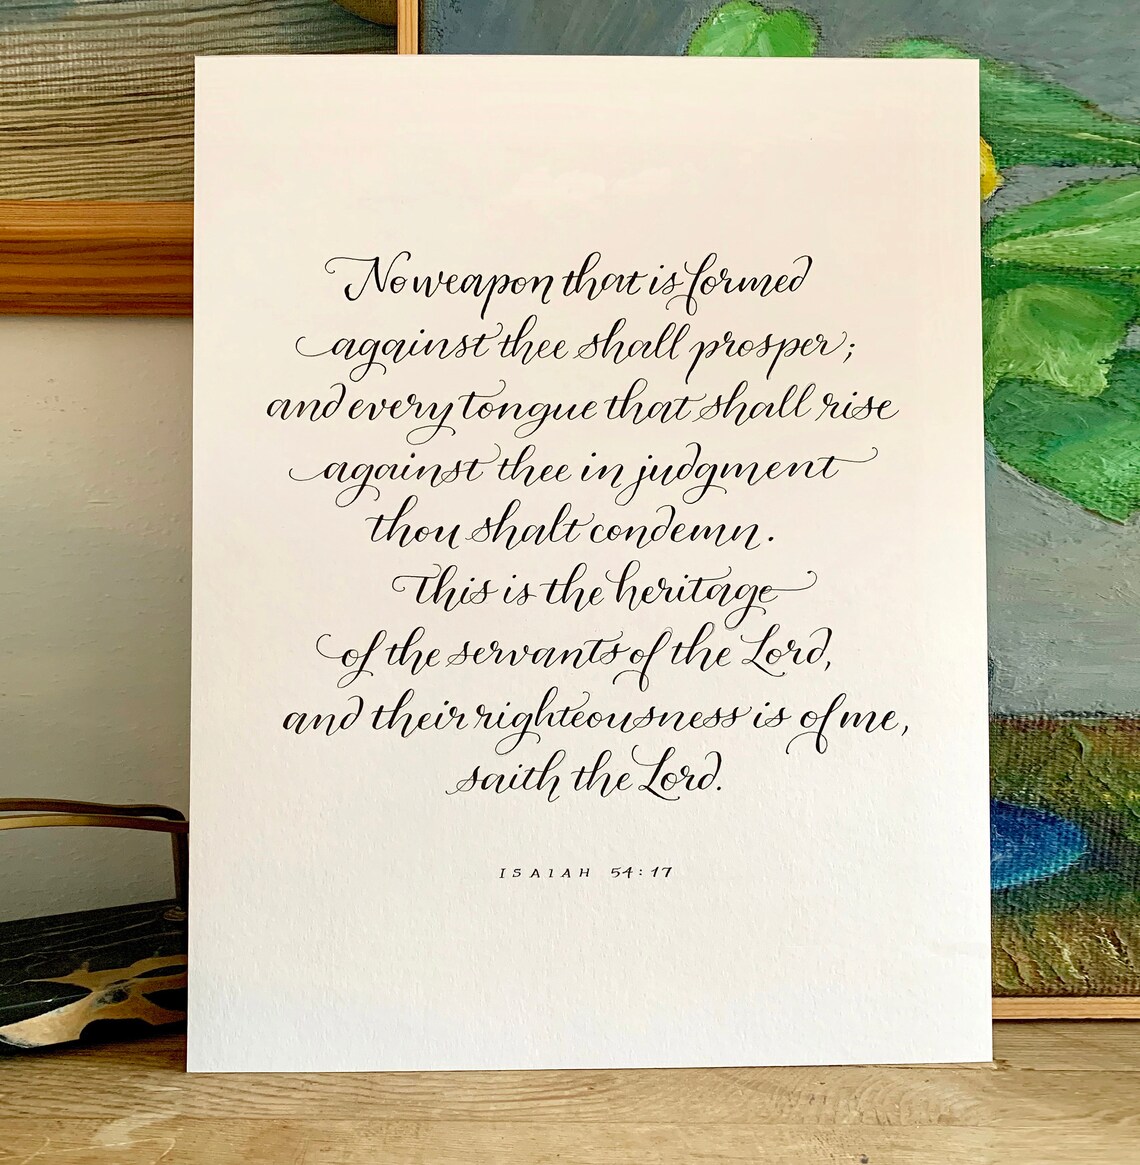 No weapon that is formed
against thee shall prosper;
and every tongue that shall rise
against thee in judgment
thou shalt condemn.
This is the heritage
of the servants of the Lord,
and their righteousness is of me,
saith the Lord.
ISAIAH 54:17